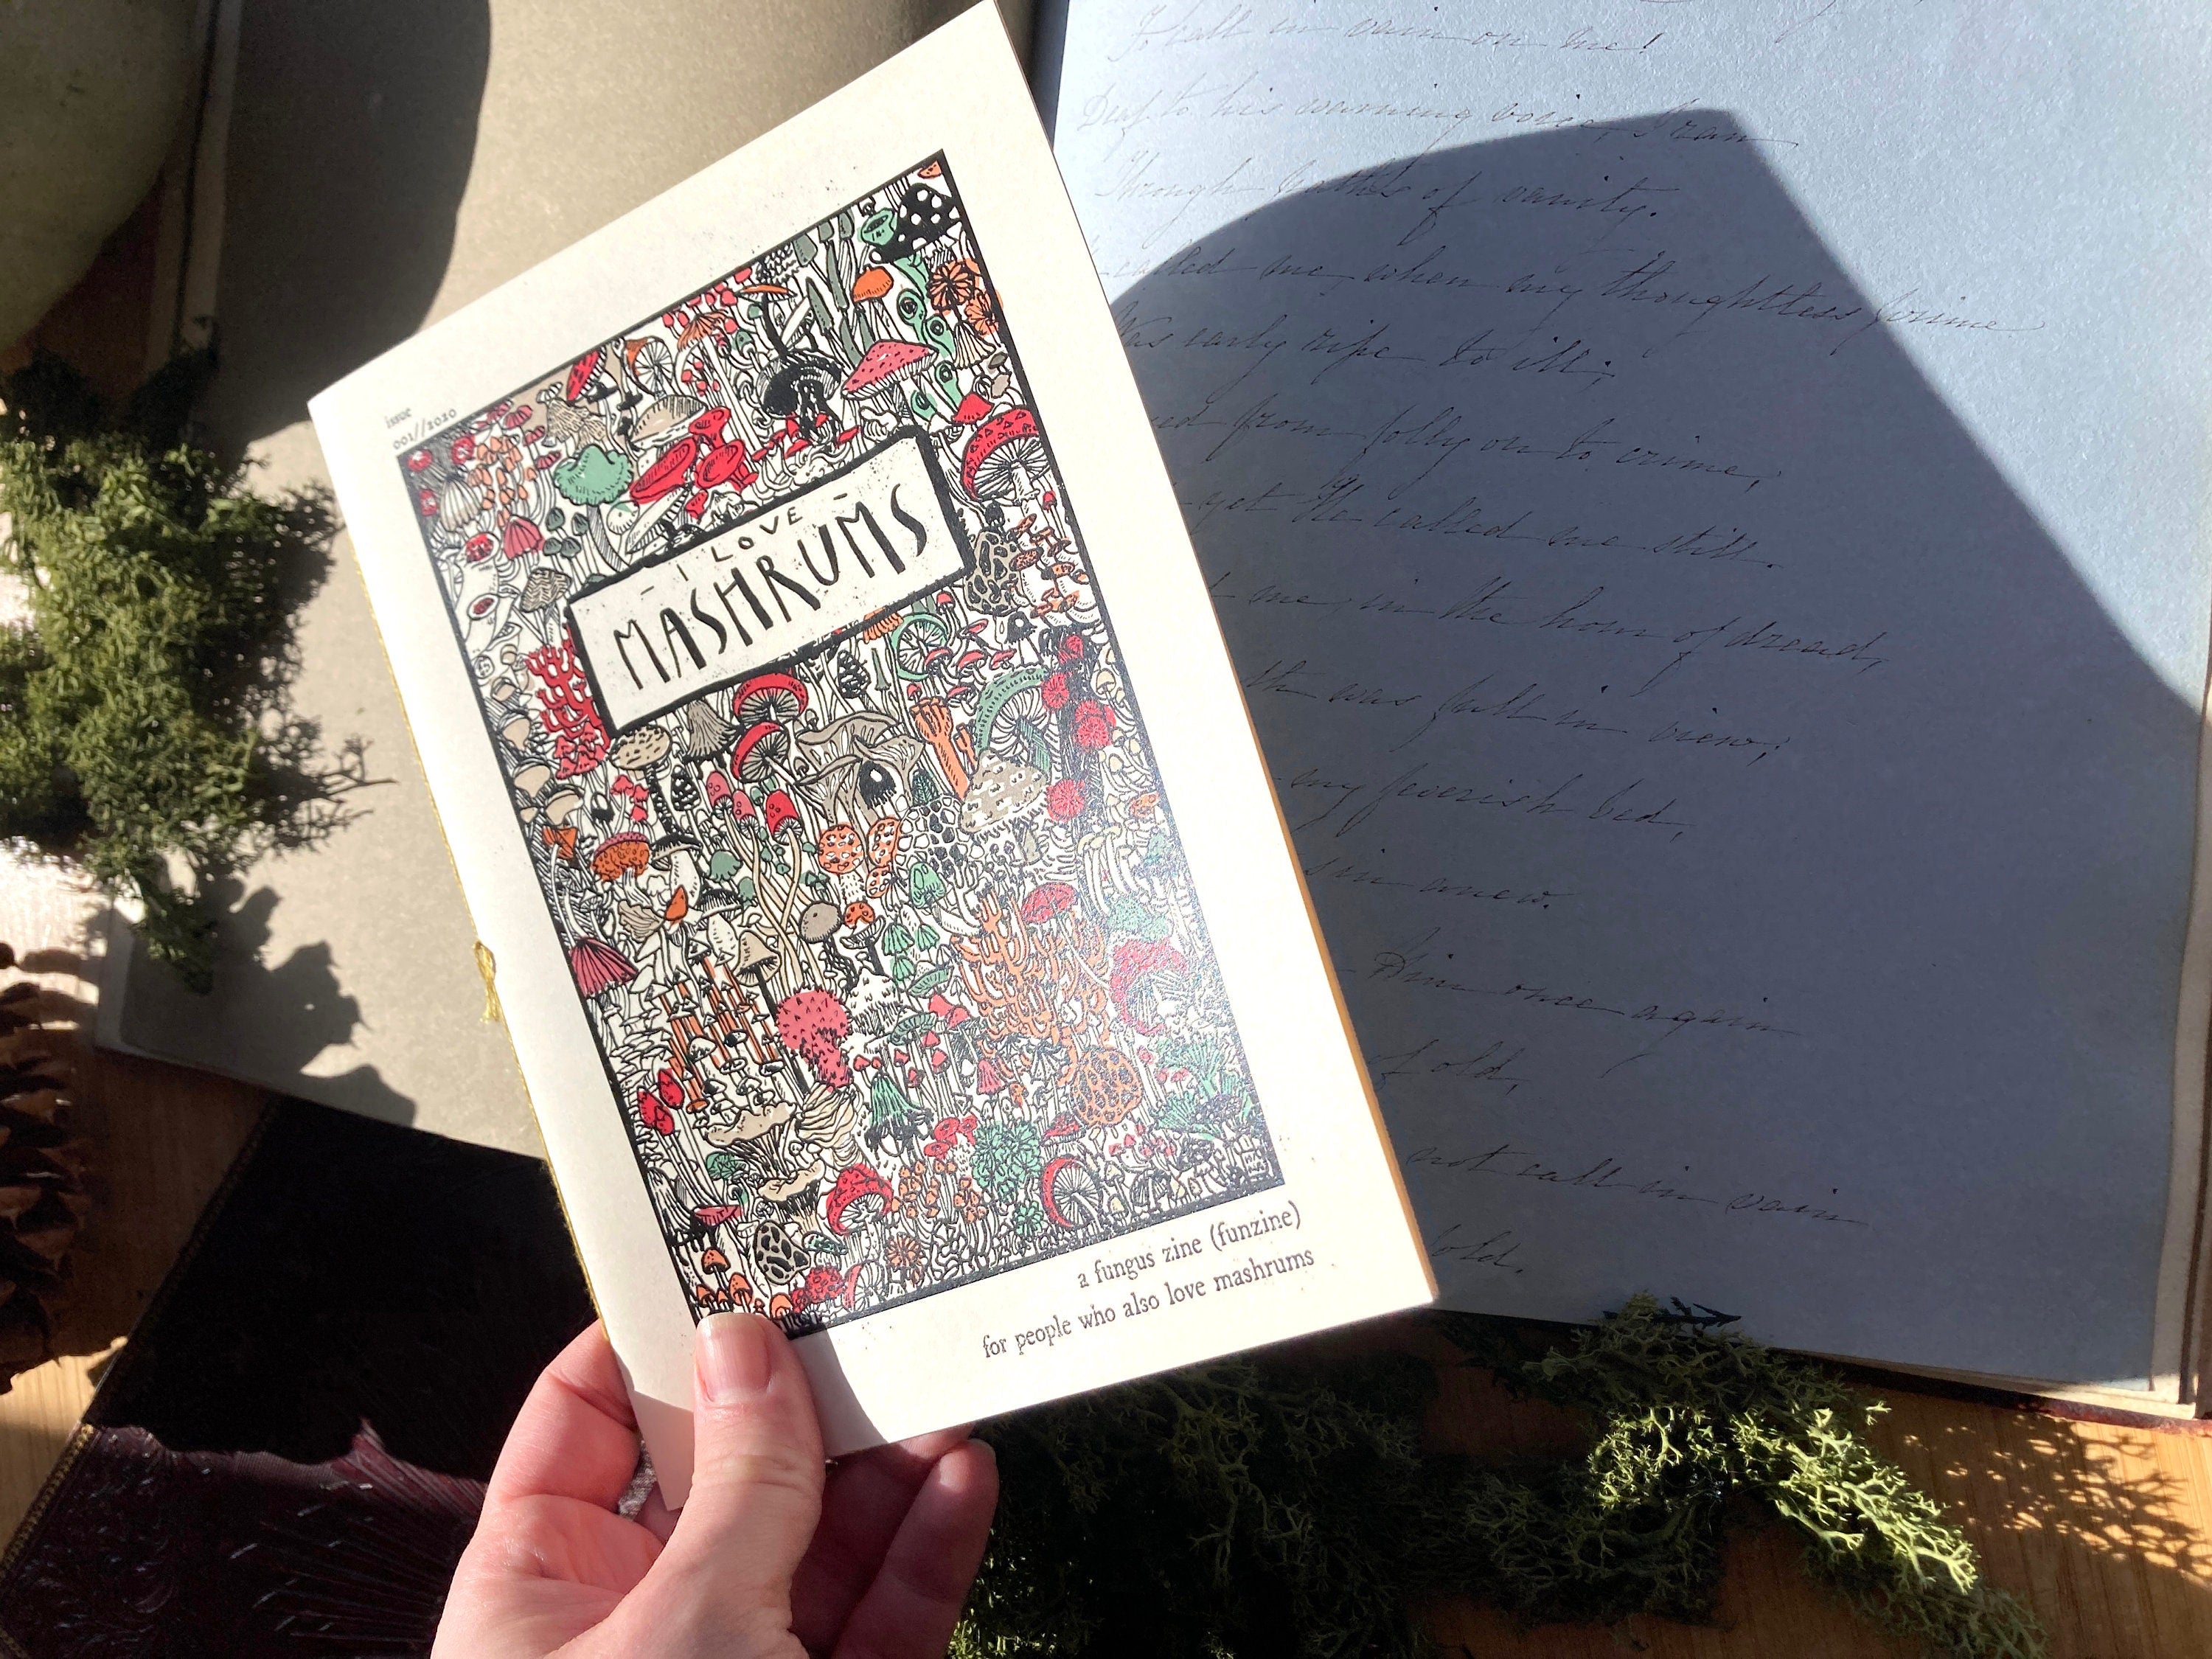 issue
001//2020
- I LOVE -
MASHRUMS
a fungus zine (funzine)
for people who also love mashrums
call in vain on me!
Deaf to his warning voice, I ran
Through paths of vanity.
called me, when my thoughtless prime
Was early ripe to ill;
from folly on to crime,
yet He called me still.
me, in the hour of dread,
was full in view;
my feverish bed,
sin anew.
Him once again
of old,
not call in vain
old.